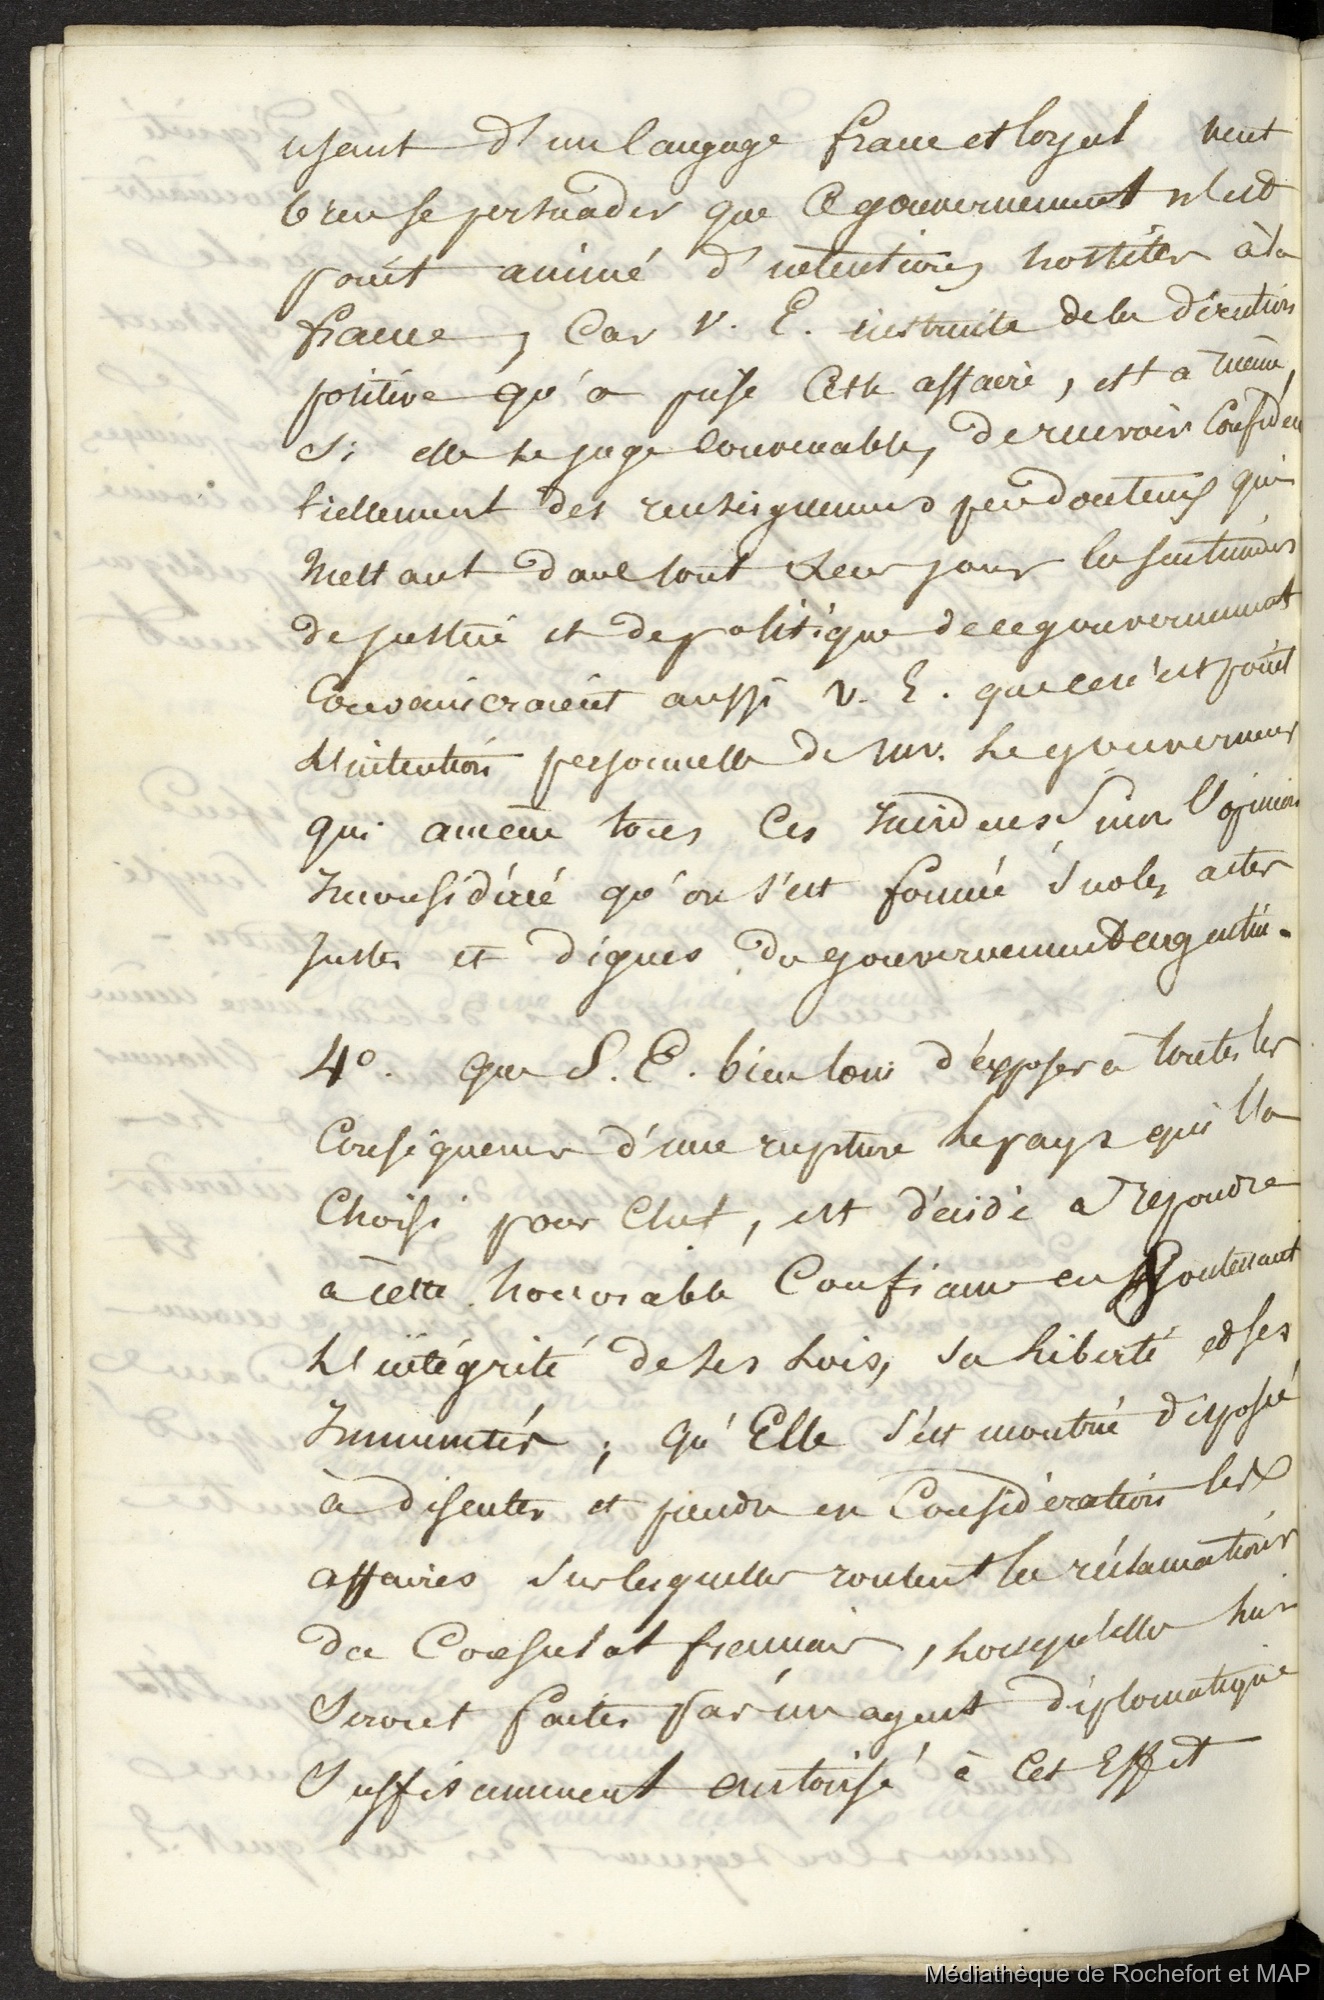 usant d'un langage franc et loyal veut
bien se persuader que ce gouvernement n'est
point animé d'intentions hostiles à la
france, Car V. E. instruite de la direction
positive qu'a prise cette affaire, est a même,
si elle le juge convenable, de recevoir confiden
tiellement des renseignemens peu douteux qui
mettant dans tout leur jour les sentimens
de justice et de politique de ce gouvernement
Convaincraient aussi V. E. que ce n'est point
L'intention personnelle de mr. Le gouverneur
qui amène tous ces Incidens Sinon l'opinion
Inconsidérée qu'on s'est formée sur les actes
justes et dignes du gouvernement argentin.
4o. que S. E. bien loin d'exposer a toutes les
Conséquences d'une rupture le pays qui l'a
Choisi pour Chef, est décidé a répondre
a cette honorable Confiance en Soutenant
L'intégrité de ses Lois, sa Liberté et ses
Immunités ; qu'Elle s'est montrée disposée
à discuter et prendre en Considération les
affaires sur lesquelles roulent les réclamations
du Consulat français, lorsqu'elles lui
Seront faites par un agent diplomatique
Suffisamment autorisé à cet Effet
Médiathèque de Rochefort et MAP